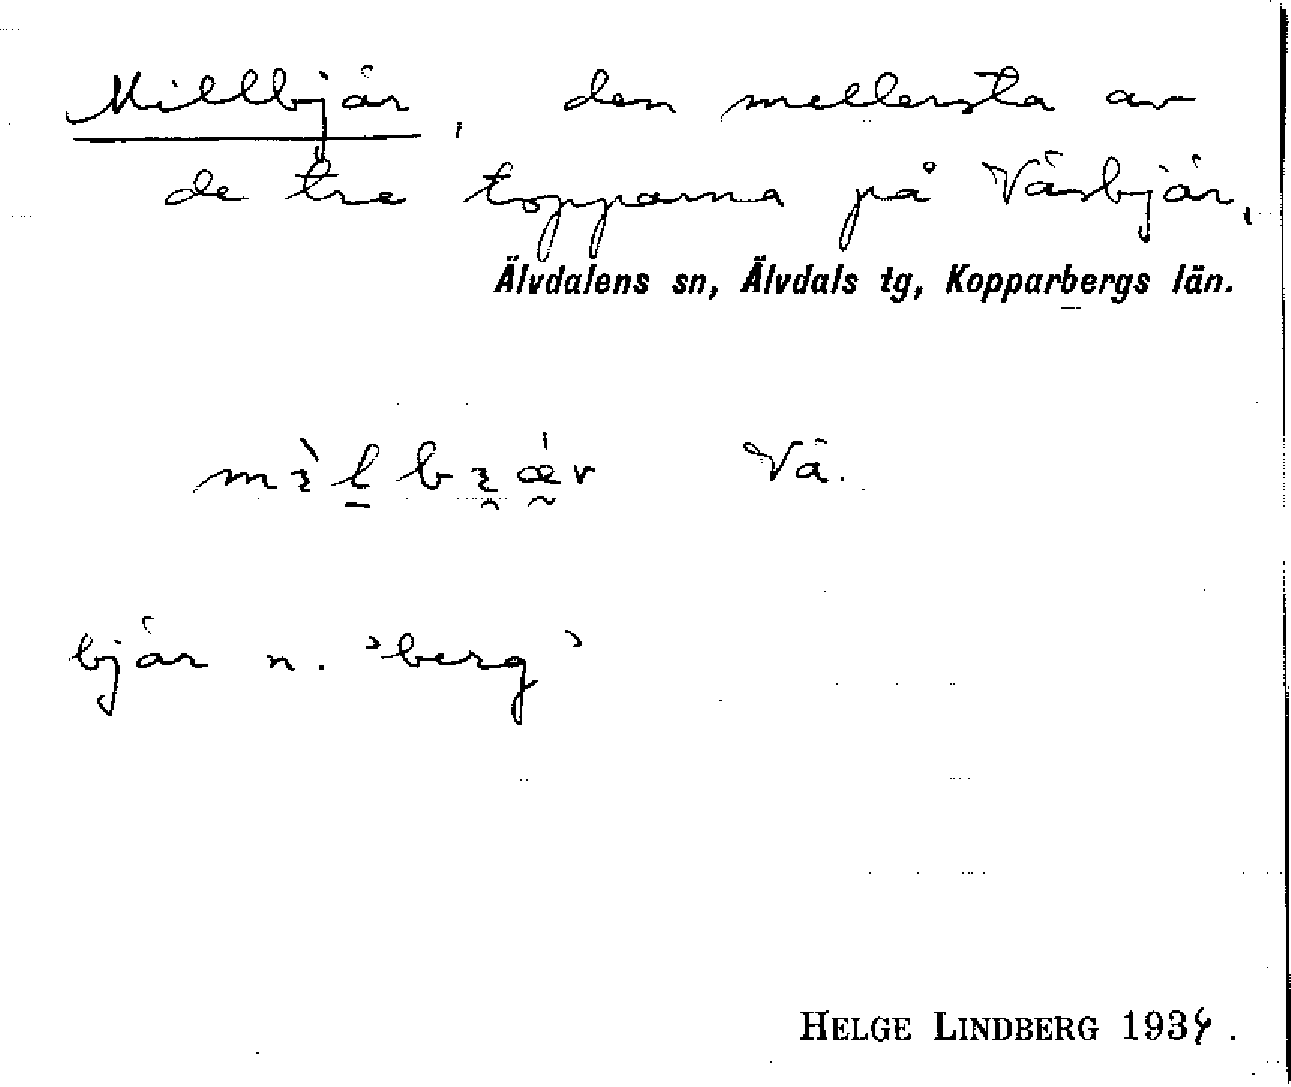 Millbjär, den mellersta av
de tre topparna på Väsbjär,
Älvdalens sn, Älvdals tg, Kopparbergs län.
Vä.
bjär n. ”berg”
HELGE LINDBERG 1934.